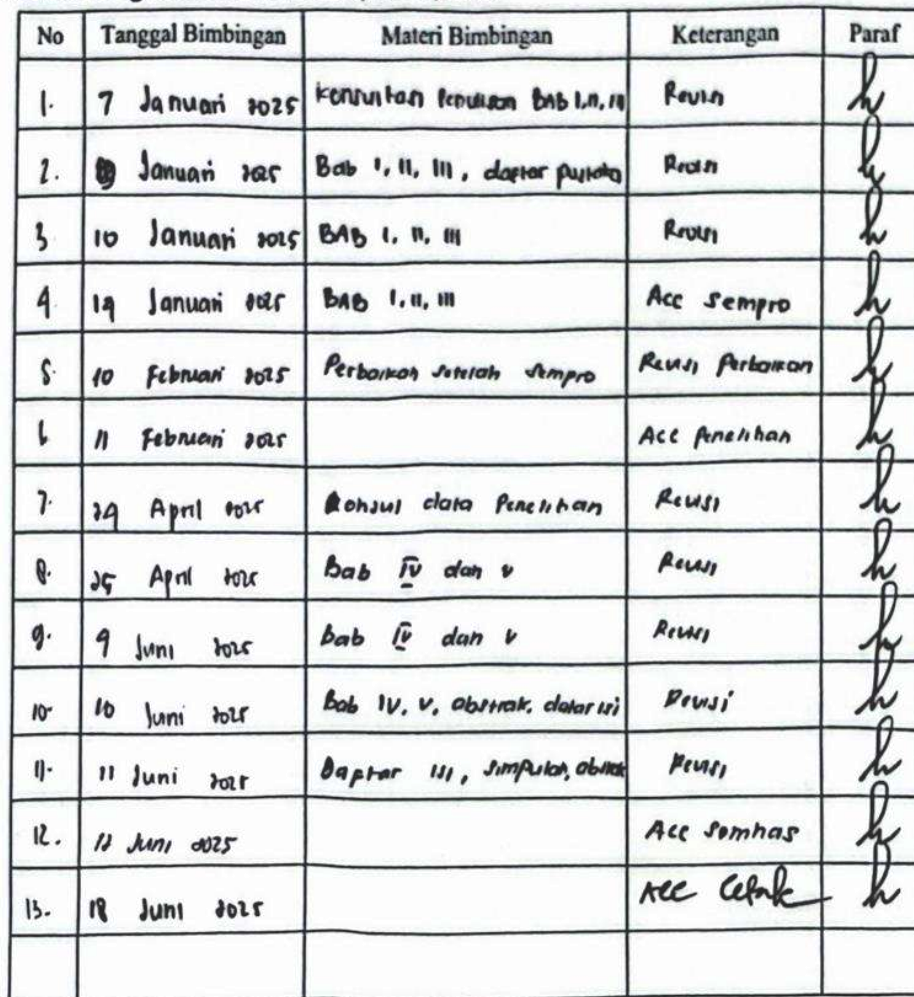 No Tanggal Bimbingan Materi Bimbingan Keterangan Paraf
1. 7 Januari 2025 Bab I, II, III Revisi
2. Januari 2025 Bab I, II, III, daftar pustaka Revisi
3. 10 Januari 2025 BAB I, II, III Revisi
4. 14 Januari 2025 BAB I, II, III Acc Sempro
5. 10 Februari 2025 Perbaikan setelah sempro Revisi Perbaikan
6 11 Februari 2025 Acc Penelitian
7. 24 April 2025 Konsul data Penelitian Revisi
8. 25 April 2025 Bab IV dan V Revisi
9. 9 Juni 2025 bab IV dan V Revisi
10. 10 Juni 2025 Bab IV, V, abstrak, Revisi
11. 11 Juni 2025 Daftar isi, simpulan, abstrak Revisi
12. Juni 2025 Acc Semhas
13. 18 Juni 2025 Acc Cetak